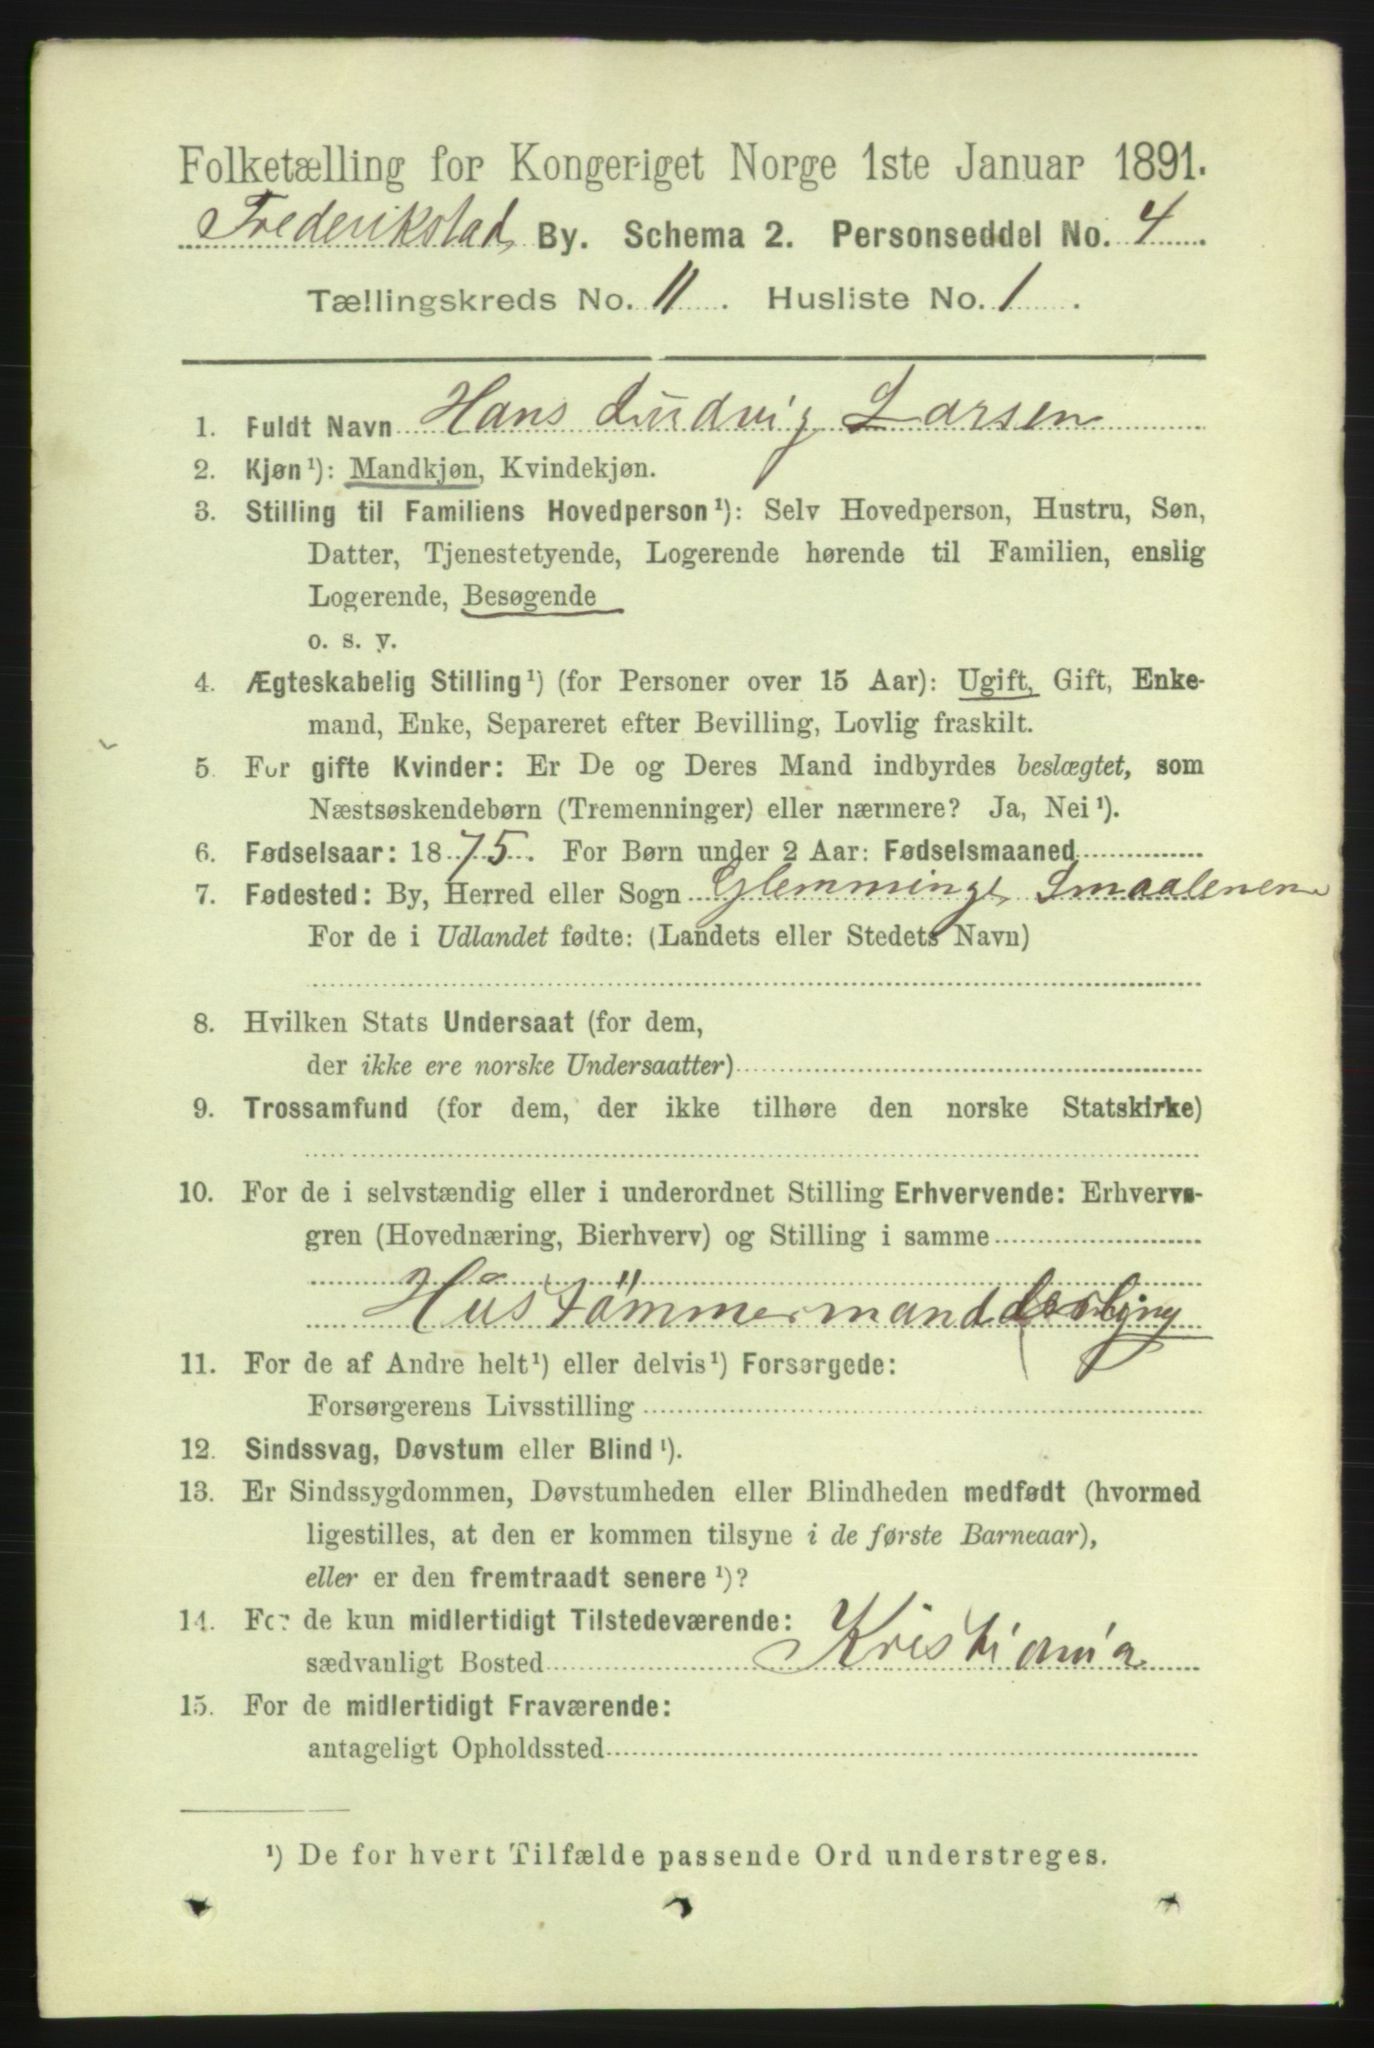 Folketælling for Kongeriget Norge 1ste Januar 1891.
Frederikstad By. Schema 2. Personseddel No. 4
Tællingskreds No. 11. Husliste No. 1.
1. Fuldt Navn Hans Ludvig Larsen
2. Kjøn ¹): Mandkjøn, Kvindekjøn.
3. Stilling til Familiens Hovedperson ¹): Selv Hovedperson, Hustru, Søn,
Datter, Tjenestetyende, Logerende hørende til Familien, enslig
Logerende, Besøgende
o. s. v.
4. Ægteskabelig Stilling ¹) (for Personer over 15 Aar): Ugift, Gift, Enke-
mand, Enke, Separeret efter Bevilling, Lovlig fraskilt.
5. For gifte Kvinder: Er De og Deres Mand indbyrdes beslægtet, som
Næstsøskendebørn (Tremenninger) eller nærmere? Ja, Nei ¹).
6. Fødselsaar: 1875. For Børn under 2 Aar: Fødselsmaaned
7. Fødested: By, Herred eller Sogn Glemminge Smaalenene
For de i Udlandet fødte: (Landets eller Stedets Navn)
8. Hvilken Stats Undersaat (for dem,
der ikke ere norske Undersaatter)
9. Trossamfund (for dem, der ikke tilhøre den norske Statskirke)
10. For de i selvstændig eller i underordnet Stilling Erhvervende: Erhvervs-
gren (Hovednæring, Bierhverv) og Stilling i samme
Hustømmermand
11. For de af Andre helt ¹) eller delvis ¹) Forsørgede:
Forsørgerens Livsstilling
12. Sindssvag, Døvstum eller Blind ¹).
13. Er Sindssygdommen, Døvstumheden eller Blindheden medfødt (hvormed
ligestilles, at den er kommen tilsyne i de første Barneaar),
eller er den fremtraadt senere ¹)?
14. For de kun midlertidigt Tilstedeværende:
sædvanligt Bosted Kristiania
15. For de midlertidigt Fraværende:
antageligt Opholdssted
¹) De for hvert Tilfælde passende Ord understreges.